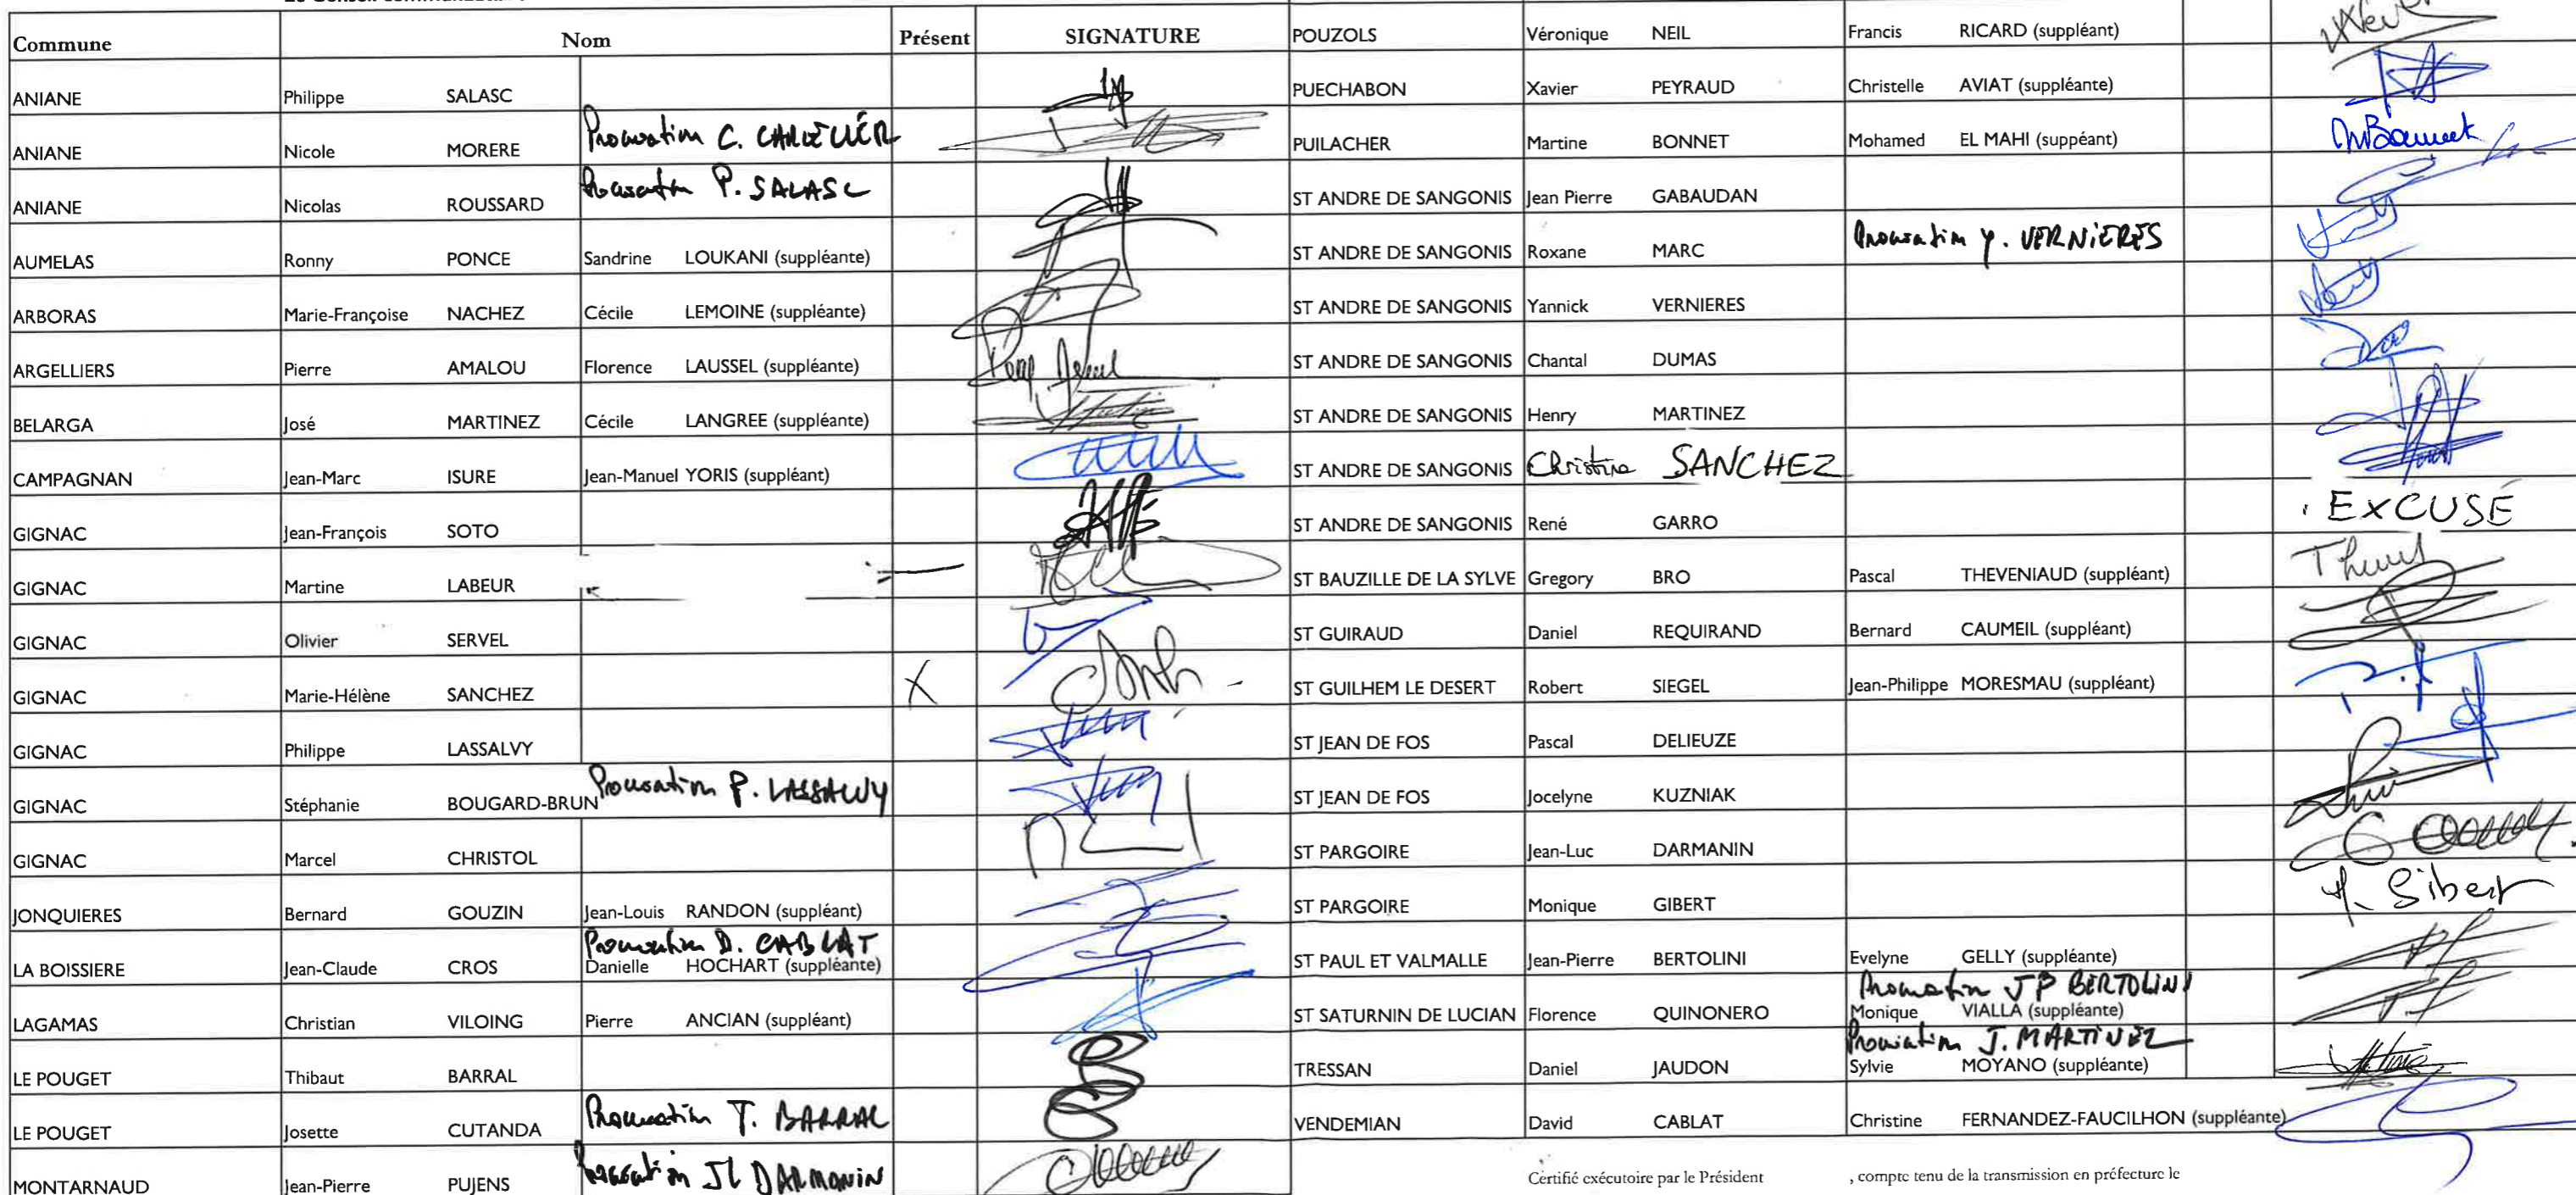 Commune Nom Présent SIGNATURE
ANIANE Philippe SALASC
ANIANE Nicole MORERE Procuration C.
ANIANE Nicolas ROUSSARD Procuration P. SALASC
AUMELAS Ronny PONCE Sandrine LOUKANI (suppléante)
ARBORAS Marie-Françoise NACHEZ Cécile LEMOINE (suppléante)
ARGELLIERS Pierre AMALOU Florence LAUSSEL (suppléante)
BELARGA José MARTINEZ Cécile LANGREE (suppléante)
CAMPAGNAN Jean-Marc ISURE Jean-Manuel YORIS (suppléant)
GIGNAC Jean-François SOTO
GIGNAC Martine LABEUR
GIGNAC Olivier SERVEL
GIGNAC Marie-Hélène SANCHEZ X
GIGNAC Philippe LASSALVY
GIGNAC Stéphanie BOUGARD-BRUN Procuration P. LASSALVY
GIGNAC Marcel CHRISTOL
JONQUIERES Bernard GOUZIN Jean-Louis RANDON (suppléant)
Procuration D. CABLAT
LA BOISSIERE Jean-Claude CROS Danielle HOCHART (suppléante)
LAGAMAS Christian VILOING Pierre ANCIAN (suppléant)
LE POUGET Thibaut BARRAL
LE POUGET Josette CUTANDA Procuration T. BARRAL
MONTARNAUD Jean-Pierre PUJENS Procuration JL DARMANIN
POUZOLS Véronique NEIL Francis RICARD (suppléant)
PUECHABON Xavier PEYRAUD Christelle AVIAT (suppléante)
PUILACHER Martine BONNET Mohamed EL MAHI (suppéant) MBonnet
ST ANDRE DE SANGONIS Jean Pierre GABAUDAN
ST ANDRE DE SANGONIS Roxane MARC Procuration Y. VERNIERES
ST ANDRE DE SANGONIS Yannick VERNIERES
ST ANDRE DE SANGONIS Chantal DUMAS
ST ANDRE DE SANGONIS Henry MARTINEZ
ST ANDRE DE SANGONIS Christine SANCHEZ
ST ANDRE DE SANGONIS René GARRO EXCUSÉ
ST BAUZILLE DE LA SYLVE Gregory BRO Pascal THEVENIAUD (suppléant)
ST GUIRAUD Daniel REQUIRAND Bernard CAUMEIL (suppléant)
ST GUILHEM LE DESERT Robert SIEGEL Jean-Philippe MORESMAU (suppléant)
ST JEAN DE FOS Pascal DELIEUZE
ST JEAN DE FOS Jocelyne KUZNIAK
ST PARGOIRE Jean-Luc DARMANIN
ST PARGOIRE Monique GIBERT M. Gibert
ST PAUL ET VALMALLE Jean-Pierre BERTOLINI Evelyne GELLY (suppléante)
Procuration JP BERTOLINI
ST SATURNIN DE LUCIAN Florence QUINONERO Monique VIALLA (suppléante)
Procuration J. MARTINEZ
TRESSAN Daniel JAUDON Sylvie MOYANO (suppléante)
VENDEMIAN David CABLAT Christine FERNANDEZ-FAUCILHON (suppléante)
Certifié exécutoire par le Président , compte tenu de la transmission en préfecture le